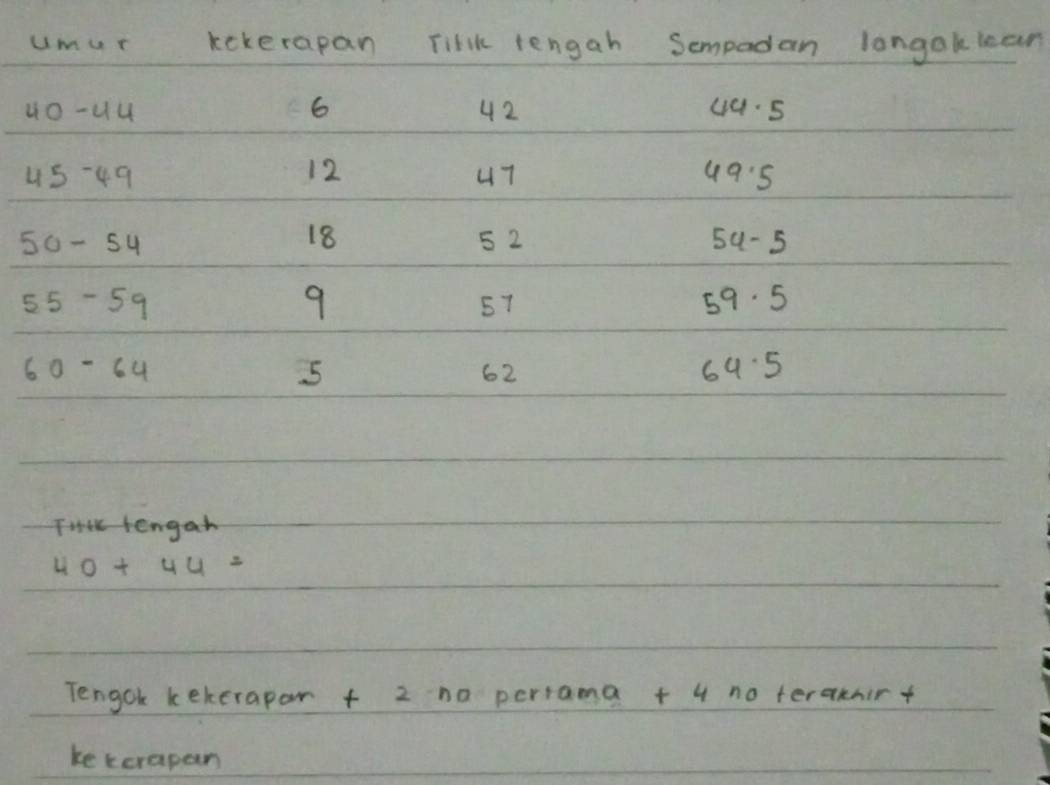 Umur kekerapan Titik tengah Sempadan longokkan
40-44 6 42 44.5
45-49 12 47 49.5
50-54 18 52 54-5
55-59 9 57 59.5
60-64 5 62 64.5
Titik tengah
40 + 44 =
Tengok kekerapan + 2 no pertama + 4 no terakhir +
kekerapan